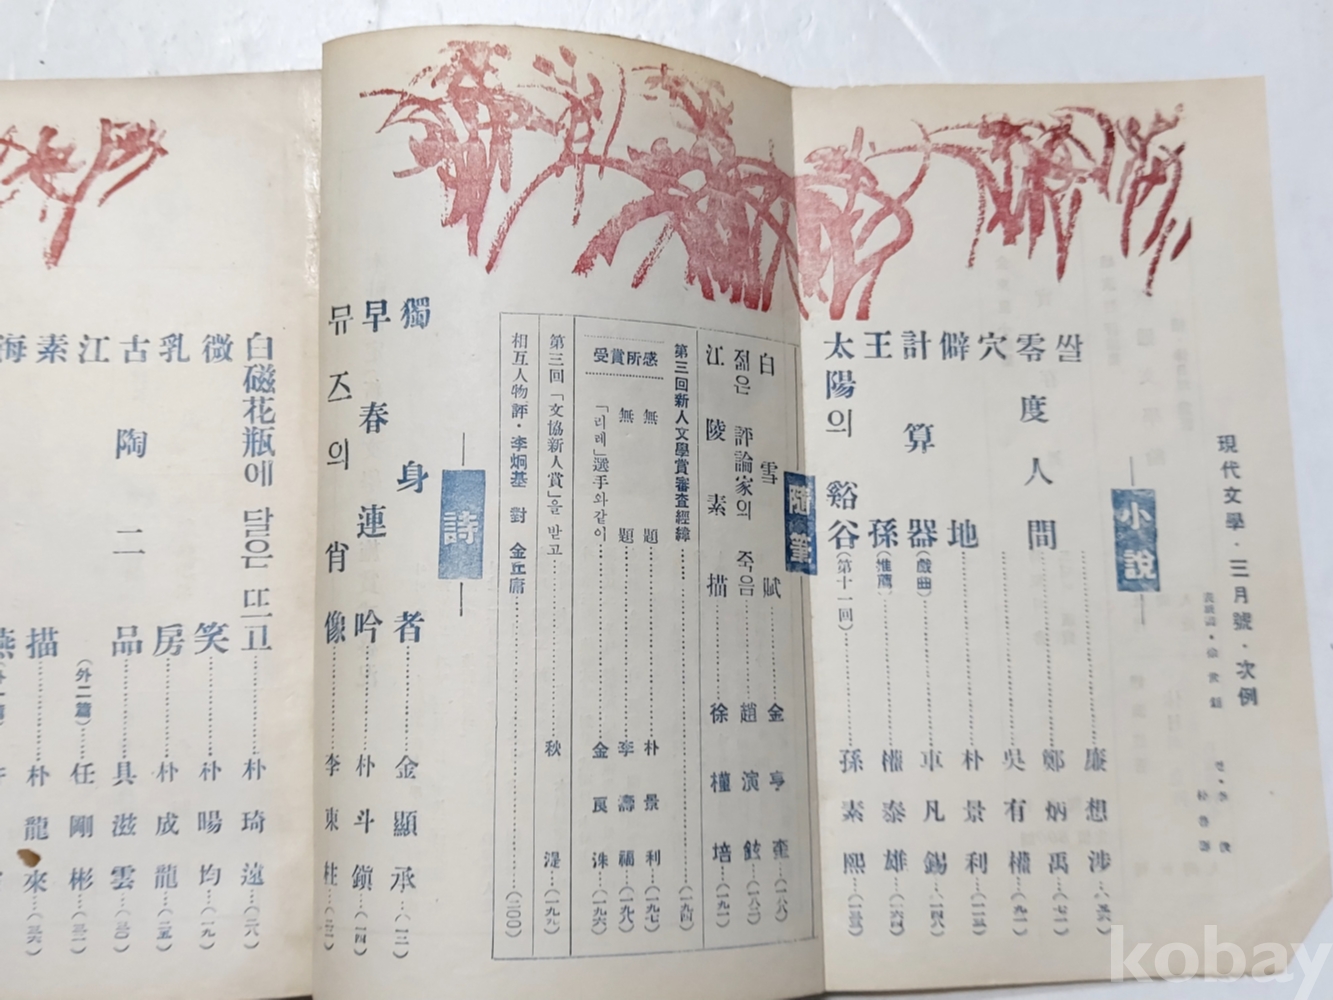 現代文學・三月號・次例
小說
쌀……廉想涉
零度人間……鄭炳禹
穴……吳有權
僻地……朴景利
計算器(戱曲)……車凡錫
王孫(推薦)……權泰雄
太陽의 谿谷(第十一回)……孫素熙
隨筆
白雪賦……金亨奎
젊은 評論家의 죽음……趙演鉉
江陵素描……徐橦培
第三回新人文學賞審査經緯……(一九四)
受賞所感
無題……朴景利(一九七)
無題……李壽福(一九八)
「리레」選手와같이……金良洙(一九六)
第三回「文協新人賞」을 받고……秋湜(一九九)
相互人物評・李炯基 對 金丘庸……(二〇〇)
詩
獨身者……金顯承(一二)
早春連吟……朴斗鎭(一四)
뮤즈의 肖像……李東柱
白磁花甁에 달은 뜨고……朴琦遠
微笑……朴暘均
乳房……朴成龍
古陶二品……具滋雲
江(外二篇)……任剛彬
素描……朴龍來
海燕
kobay